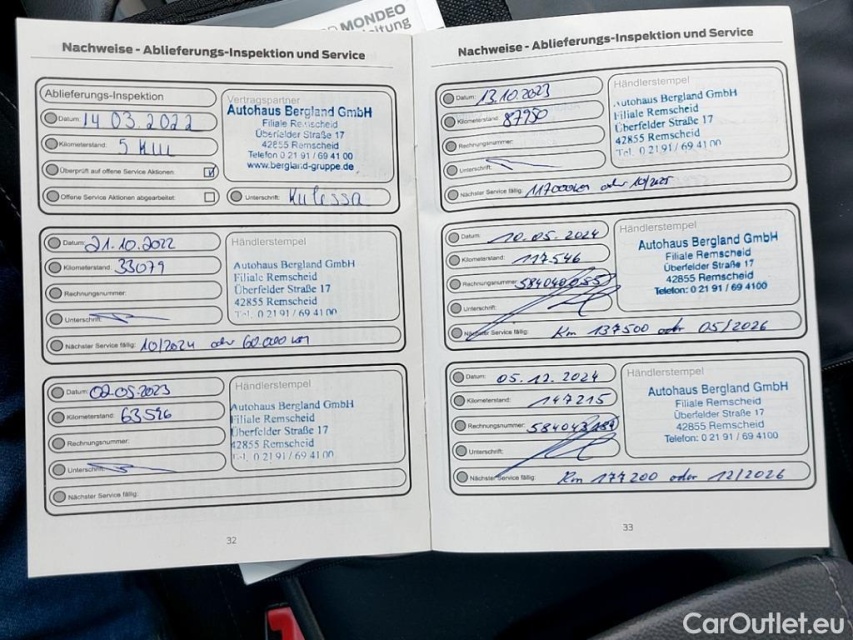 MONDEO
Nachweise - Ablieferungs-Inspektion und Service
Ablieferungs-Inspektion
Datum: 14.03.2022
Kilometerstand: 5 KM
Überprüft auf offene Service Aktionen:
Offene Service Aktionen abgearbeitet:
Vertragspartner
Autohaus Bergland GmbH
Filiale Remscheid
Überfelder Straße 17
42855 Remscheid
Telefon 0 21 91 / 69 41 00
www.bergland-gruppe.de
Unterschrift: Kulessa
Datum: 21.10.2022
Kilometerstand: 33079
Rechnungsnummer:
Unterschrift:
Händlerstempel
Autohaus Bergland GmbH
Filiale Remscheid
Überfelder Straße 17
42855 Remscheid
Tel. 0 21 91 / 69 41 00
Nächster Service fällig: 10/2024 oder 60.000 km
Datum: 02.05.2023
Kilometerstand: 63596
Rechnungsnummer:
Unterschrift:
Händlerstempel
Autohaus Bergland GmbH
Filiale Remscheid
Überfelder Straße 17
42855 Remscheid
Tel. 0 21 91 / 69 41 00
Nächster Service fällig:
32
Nachweise - Ablieferungs-Inspektion und Service
Datum: 13.10.2023
Kilometerstand: 87950
Rechnungsnummer:
Unterschrift:
Händlerstempel
Autohaus Bergland GmbH
Filiale Remscheid
Überfelder Straße 17
42855 Remscheid
Tel. 0 21 91 / 69 41 00
Nächster Service fällig: 117000km oder 10/2025
Datum: 10.05.2024
Kilometerstand: 117546
Rechnungsnummer: 584040055
Unterschrift:
Händlerstempel
Autohaus Bergland GmbH
Filiale Remscheid
Überfelder Straße 17
42855 Remscheid
Telefon: 0 21 91 / 69 4100
Nächster Service fällig: Km 137500 oder 05/2026
Datum: 05.12.2024
Kilometerstand: 147215
Rechnungsnummer:
Unterschrift:
Händlerstempel
Autohaus Bergland GmbH
Filiale Remscheid
Überfelder Straße 17
42855 Remscheid
Telefon: 0 21 91 / 69 4100
Nächster Service fällig: Km 177200 oder 12/2026
33
CarOutlet.eu